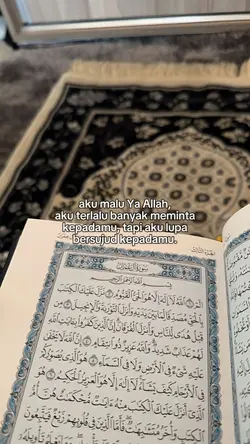 aku malu Ya Allah,
aku terlalu banyak meminta
kepadamu, tapi aku lupa
bersujud kepadamu.
الجزء الثالث
سورة آل عمران
بِسْمِ اللَّهِ الرَّحْمَٰنِ الرَّحِيمِ
الٓمٓ ١ اللَّهُ لَا إِلَٰهَ إِلَّا هُوَ الْحَيُّ الْقَيُّومُ ٢ نَزَّلَ عَلَيْكَ الْكِتَٰبَ
بِالْحَقِّ مُصَدِّقًا لِّمَا بَيْنَ يَدَيْهِ وَأَنزَلَ التَّوْرَىٰةَ وَالْإِنجِيلَ ٣ مِن
قَبْلُ هُدًى لِّلنَّاسِ وَأَنزَلَ الْفُرْقَانَ إِنَّ الَّذِينَ كَفَرُوا بِـَٔايَٰتِ اللَّهِ
لَهُمْ عَذَابٌ شَدِيدٌ وَاللَّهُ عَزِيزٌ ذُو انتِقَامٍ ٤ إِنَّ اللَّهَ لَا يَخْفَىٰ
عَلَيْهِ شَيْءٌ فِي الْأَرْضِ وَلَا فِي السَّمَاءِ ٥ هُوَ الَّذِي يُصَوِّرُكُمْ
فِي الْأَرْحَامِ كَيْفَ يَشَاءُ لَا إِلَٰهَ إِلَّا هُوَ الْعَزِيزُ الْحَكِيمُ ٦ هُوَ
الَّذِي أَنزَلَ عَلَيْكَ الْكِتَٰبَ مِنْهُ ءَايَٰتٌ مُّحْكَمَٰتٌ هُنَّ
فِي قُلُوبِهِمْ زَيْغٌ فَيَتَّبِعُونَ